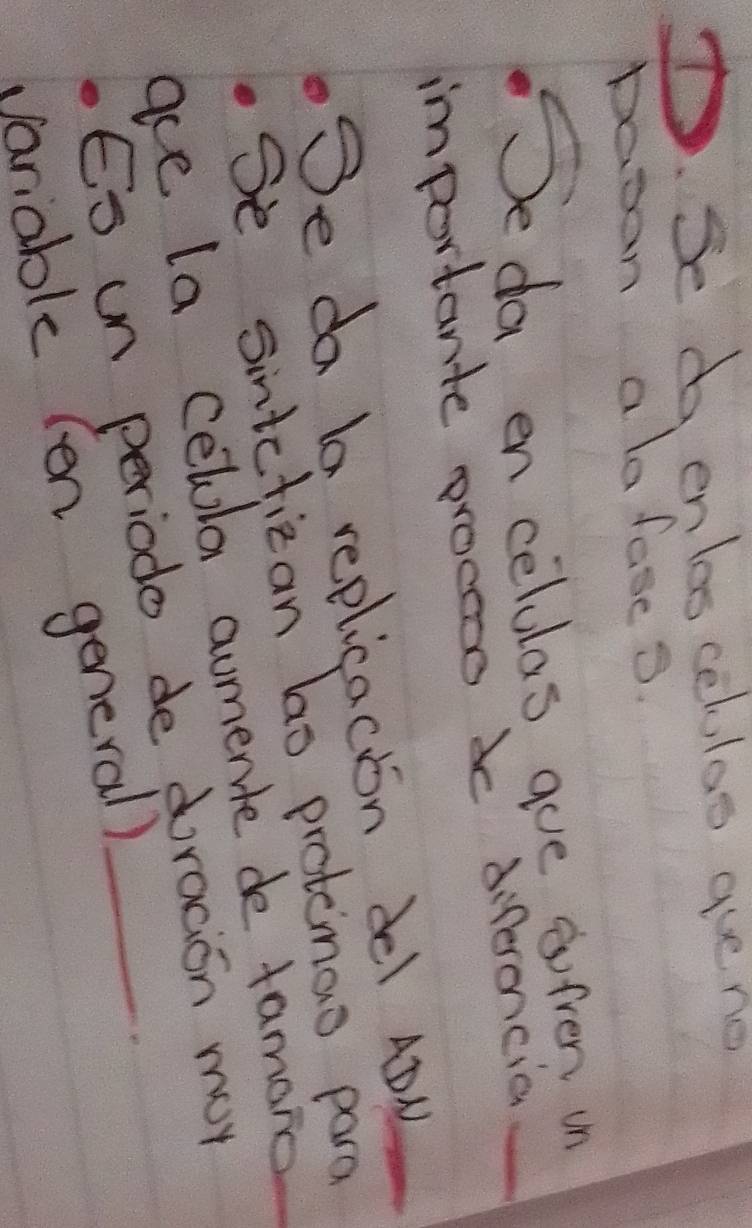 D. Se da en las células que no
pasan a la fase S.
• Se da en células que sufren un
importante proceso de diferencia
• Se da la replicación del ADN
• Se sintetizan las proteinas para
que la célula aumente de tamaño
• Es un periodo de duración muy
variable (en general)